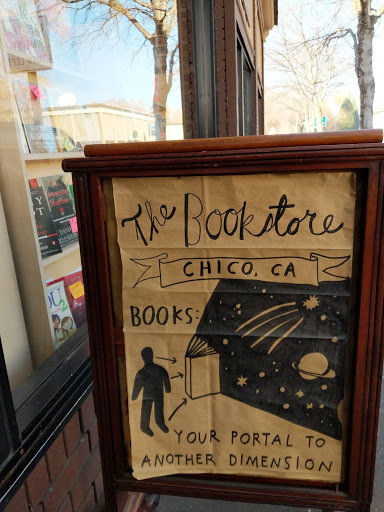 The Bookstore
CHICO, CA
BOOKS:
YOUR PORTAL TO
ANOTHER DIMENSION